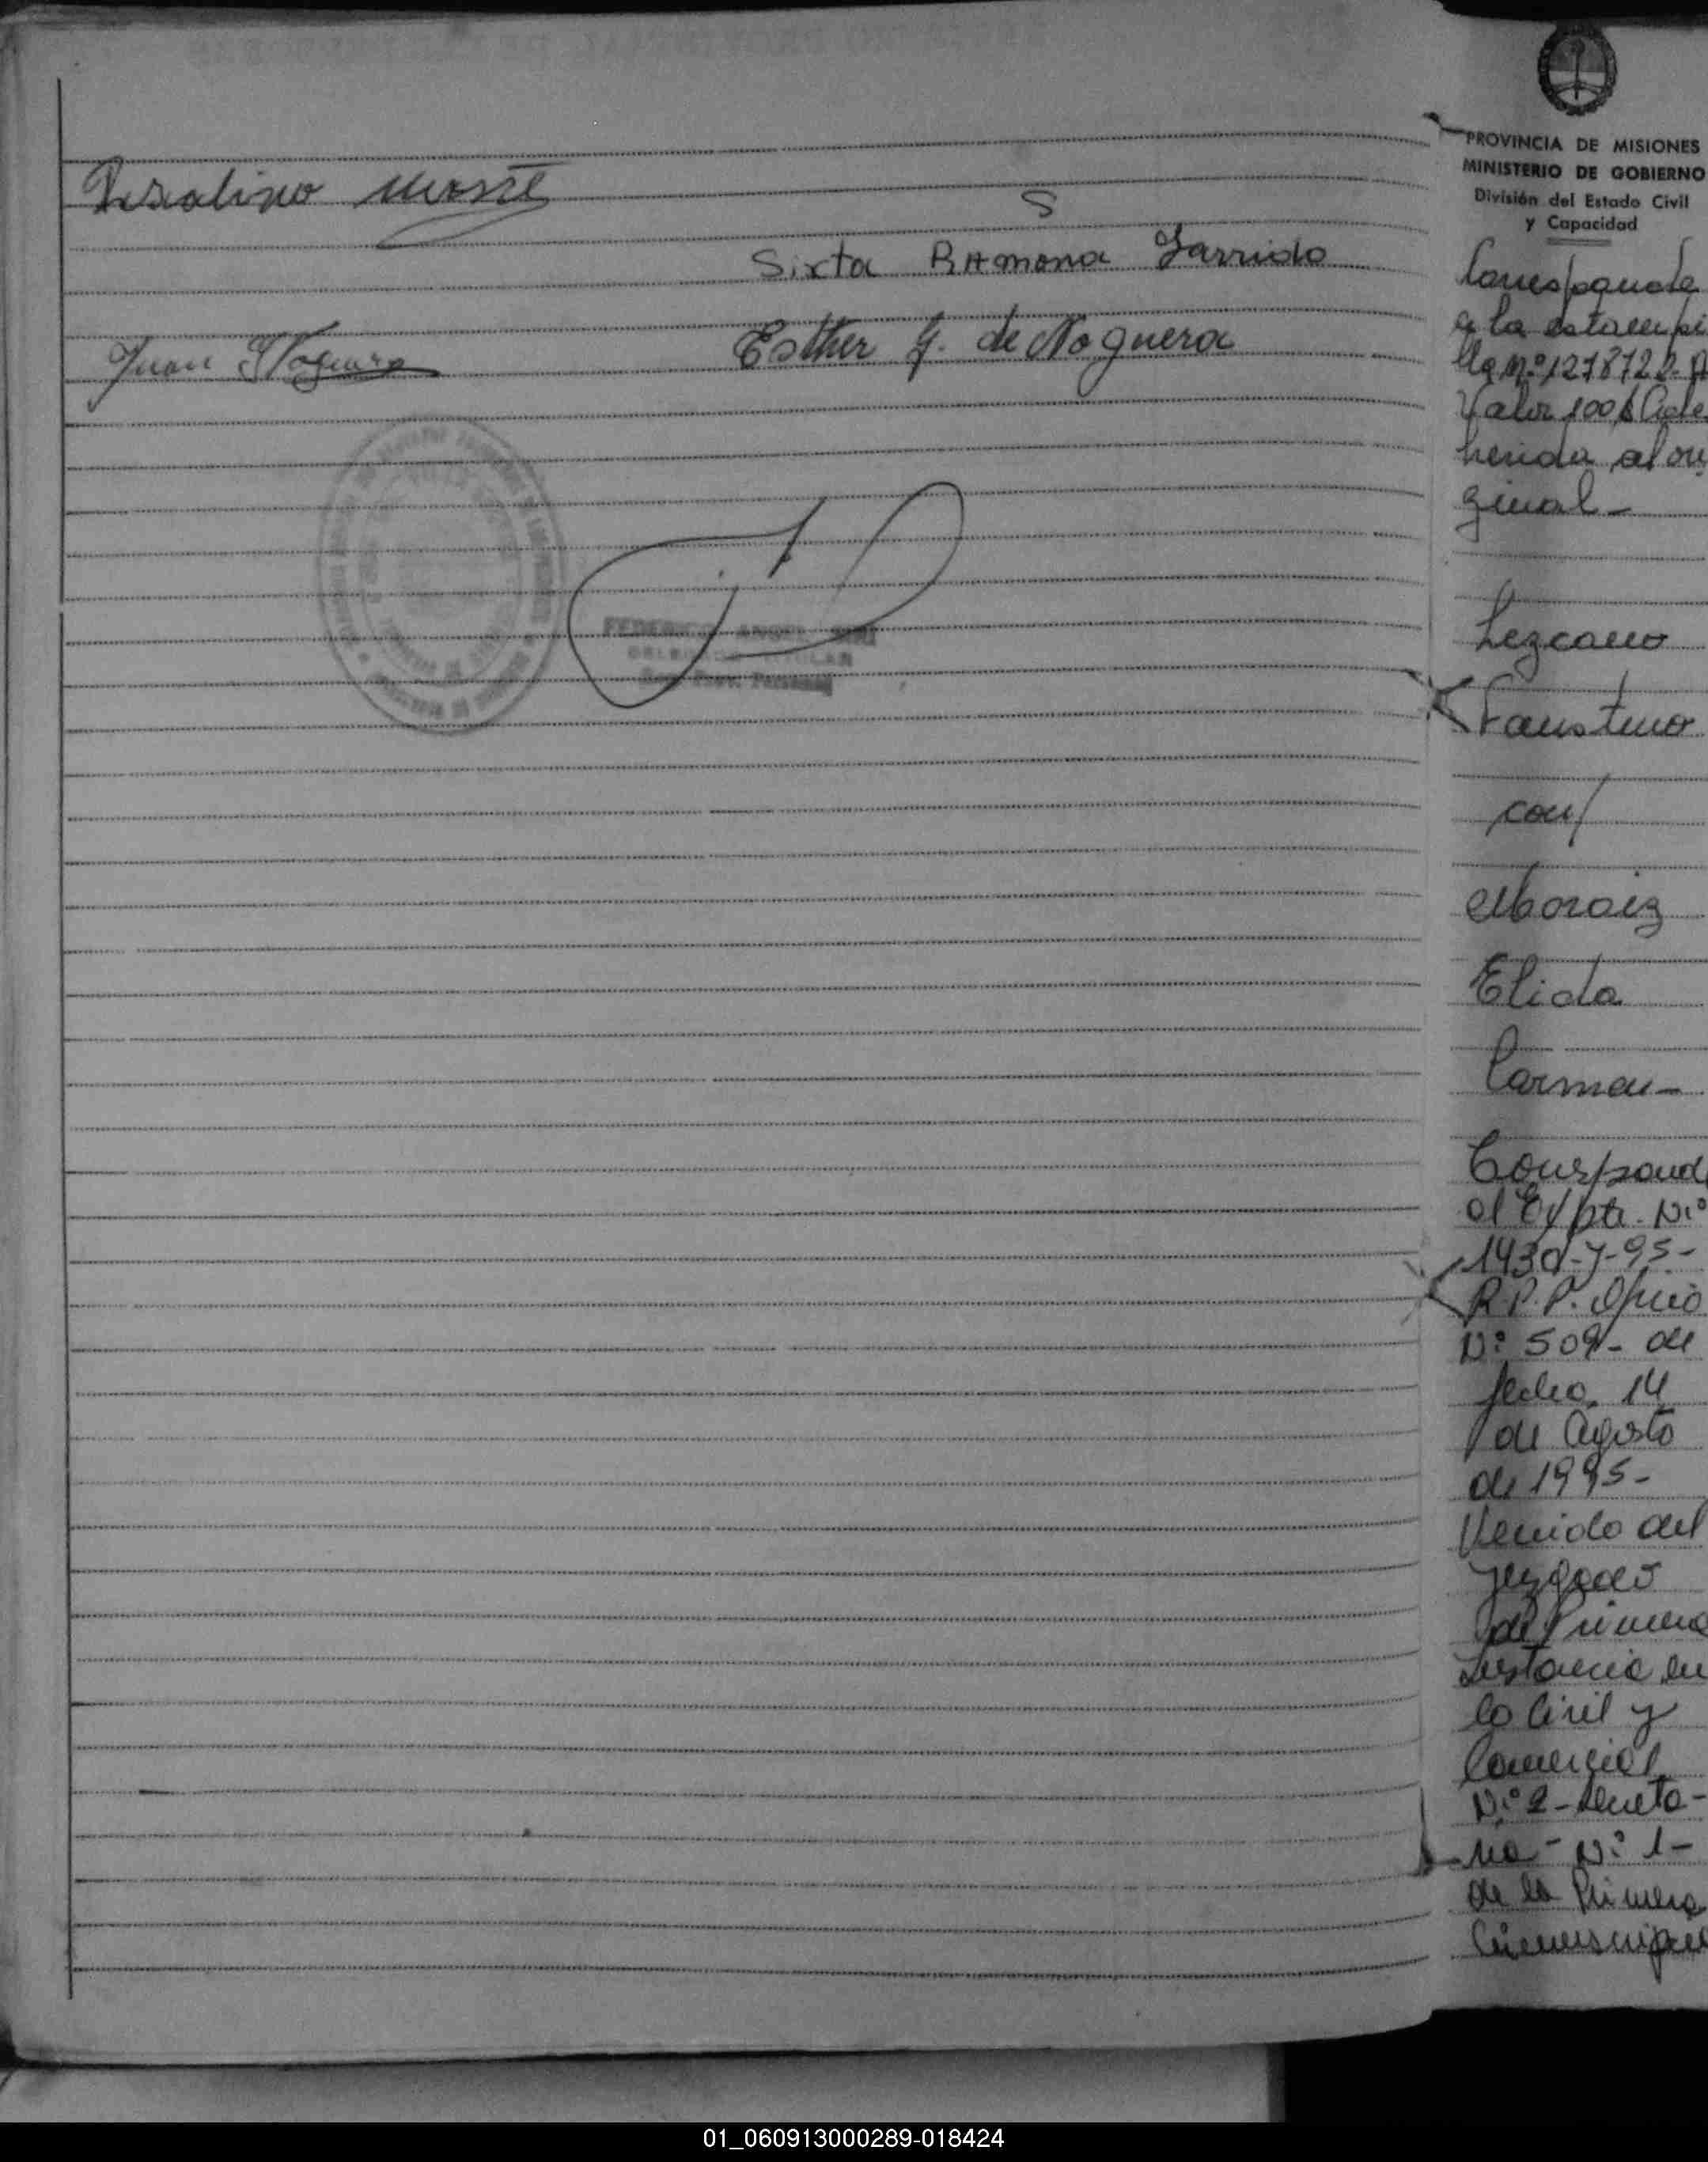 Rosalino
S
Sixta RAmona Garrido
Juan Noguera
Esther G. de Noguera
FEDERICO ANGEL
PROVINCIA DE MISIONES
MINISTERIO DE GOBIERNO
División del Estado Civil
y Capacidad
Corresponde
a la estampi
lla Nº 1278722-A
Valor 100$ Adhe
herida al ori
ginal-
Lezcano
Faustino
con/
Moraiz
Elida
Carmen-
Correspond
al Expte. Nº
1430-Y-95-
R.P.P. Oficio
Nº 509- de
fecha, 14
de Agosto
de 1995-
Venido del
Juzgado
de Primera
Instancia en
lo Civil y
Comercial
Nº 2-Secreta-
ria- Nº 1-
de la Primera
01_060913000289-018424